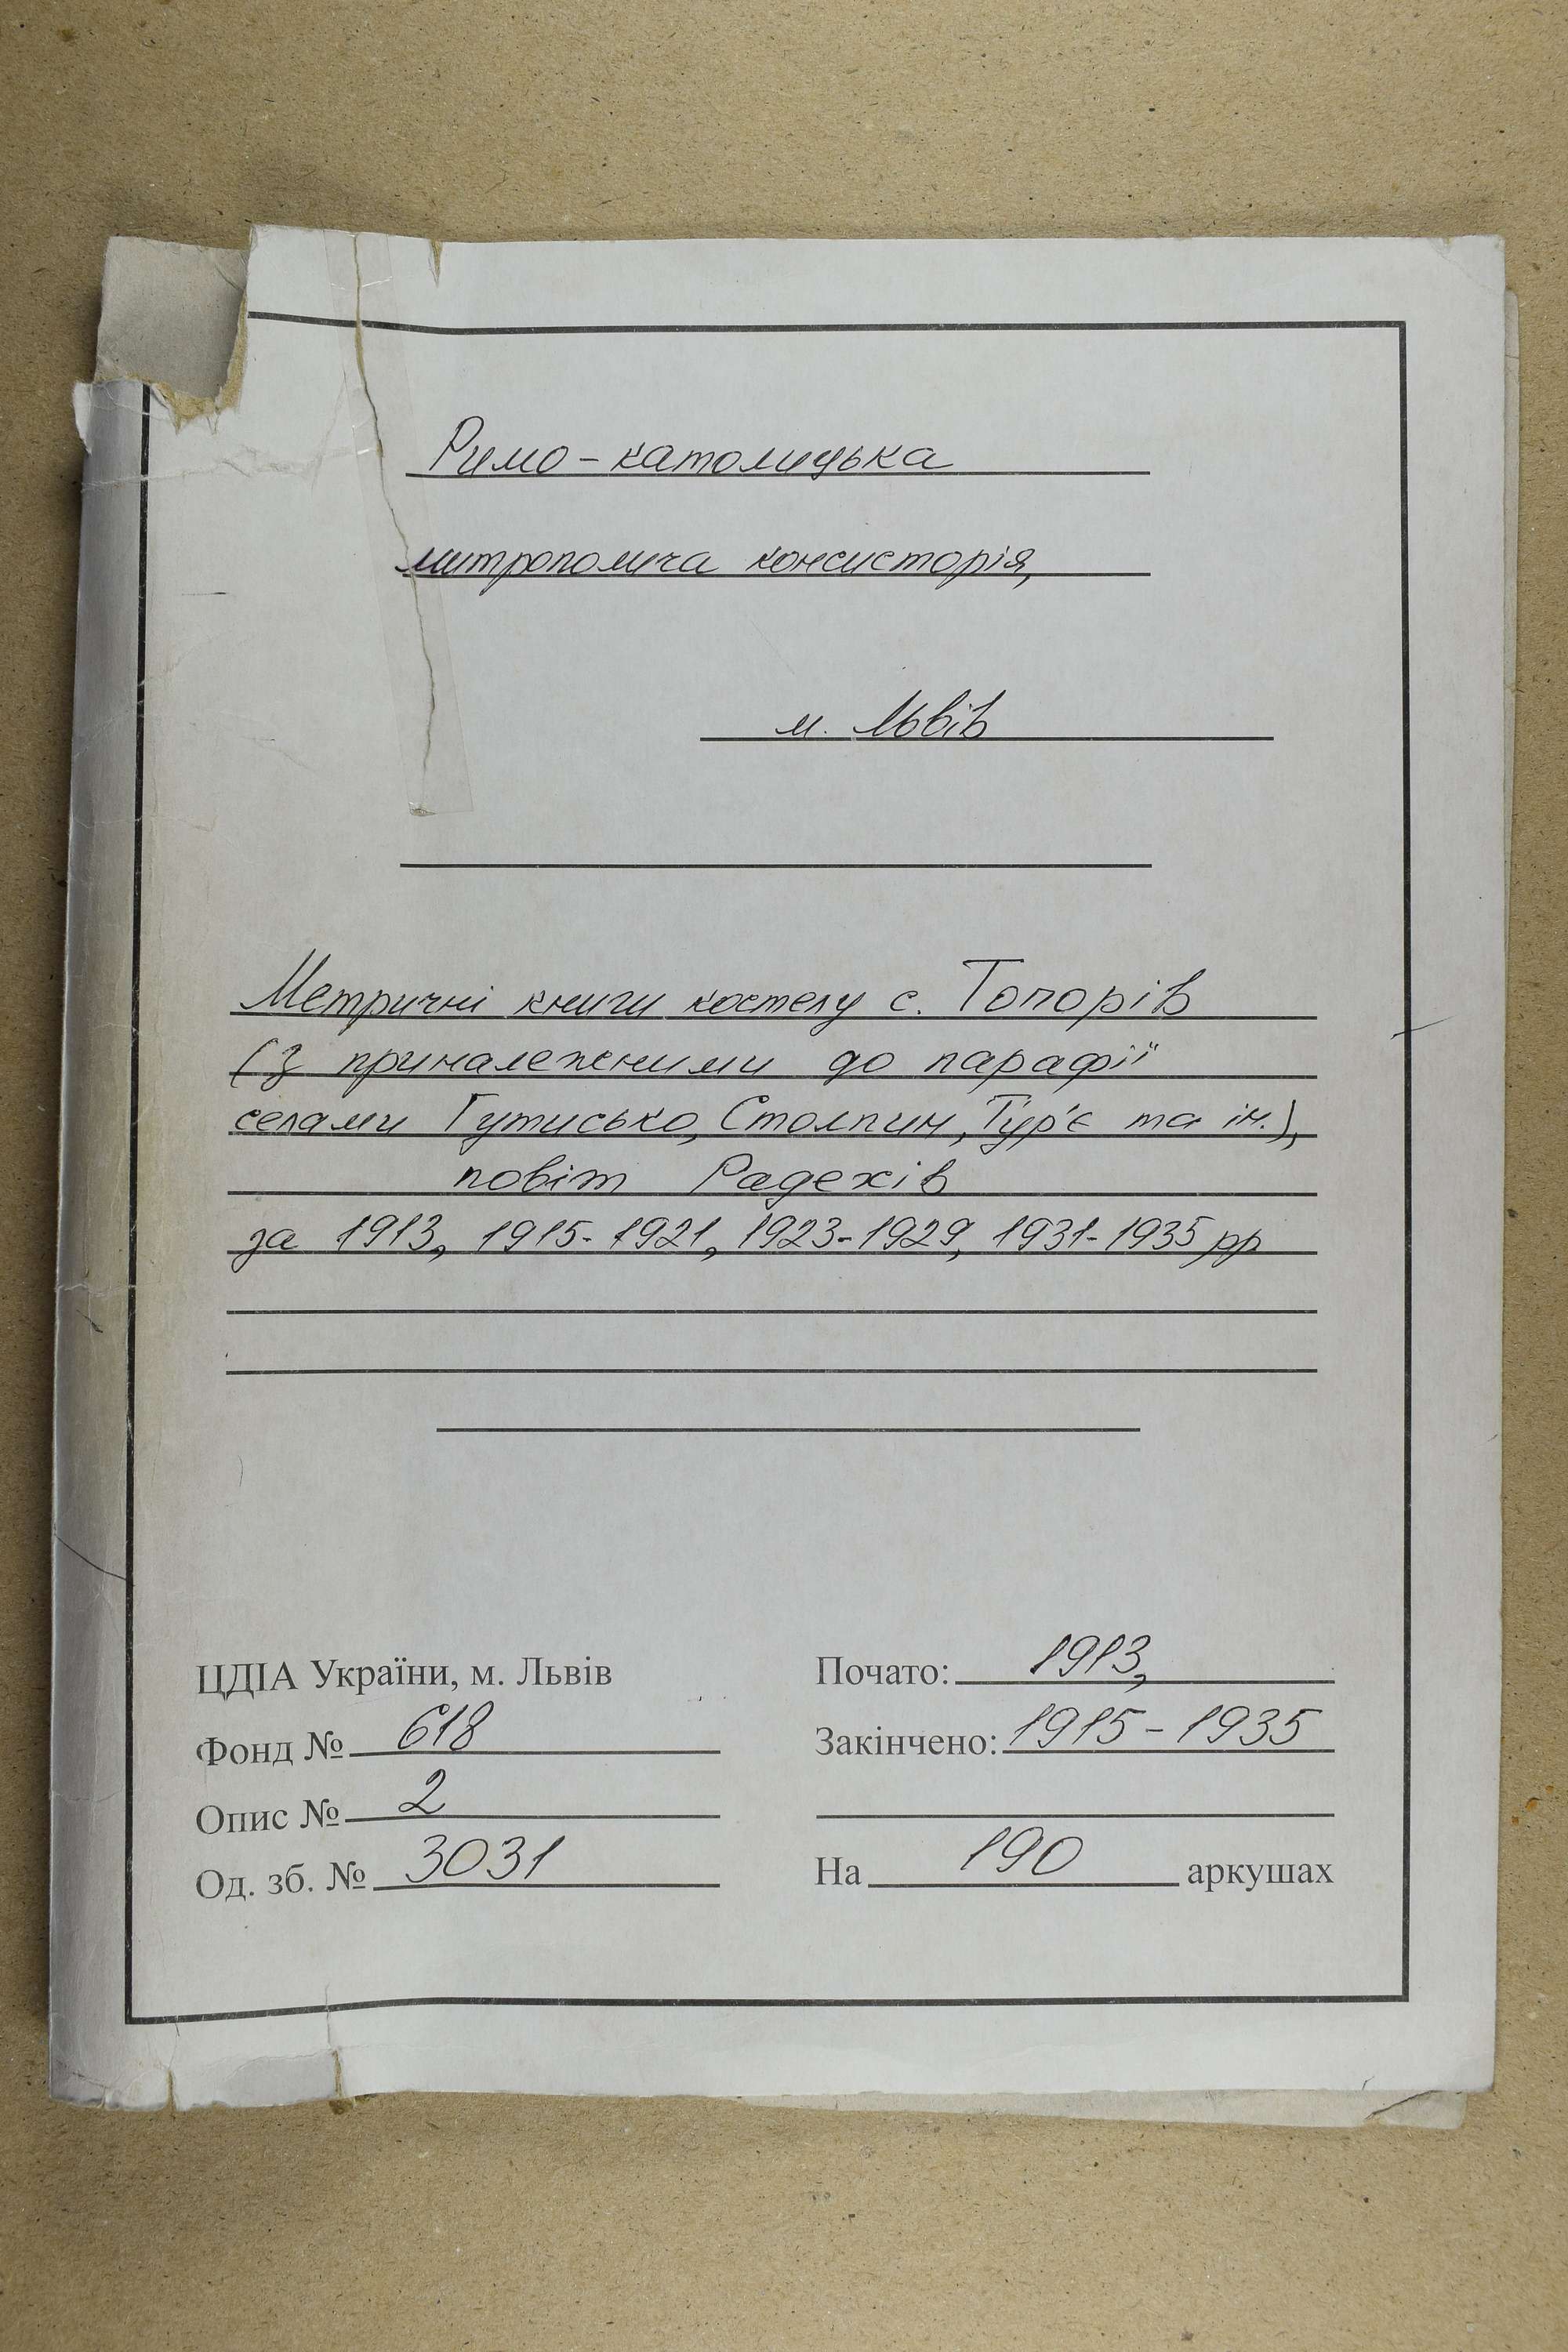 Римо-католицька
митрополича консисторія,
м. Львів
Метричні книги костелу с. Топорів
(з приналежними до парафії
селами Гутисько, Столпин, Тур'є та ін.),
повіт Радехів
за 1913, 1915-1921, 1923-1929, 1931-1935 рр
ЦДІА України, м. Львів
Фонд № 618
Опис № 2
Од. зб. № 3031
Почато: 1913,
Закінчено: 1915-1935
На 190 аркушах